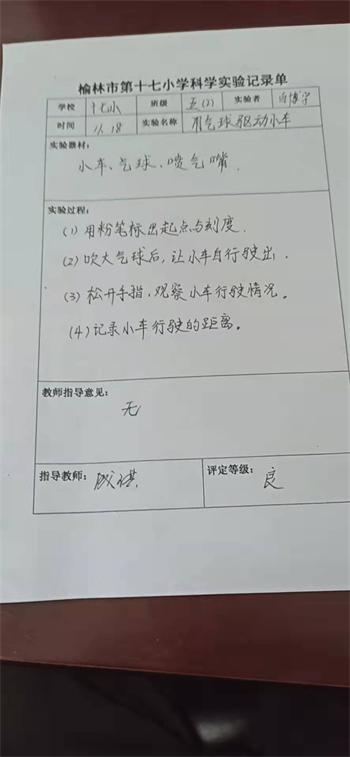 榆林市第十七小学科学实验记录单
学校 十七小 班级 五(2) 实验者 白博宇
时间 11.18 实验名称 用气球驱动小车
实验器材:
小车、气球、喷气嘴.
实验过程:
(1) 用粉笔标出起点与刻度.
(2) 吹大气球后,让小车自行驶出.
(3) 松开手指,观察小车行驶情况。
(4) 记录小车行驶的距离。
教师指导意见:
无
指导教师: 评定等级: 良